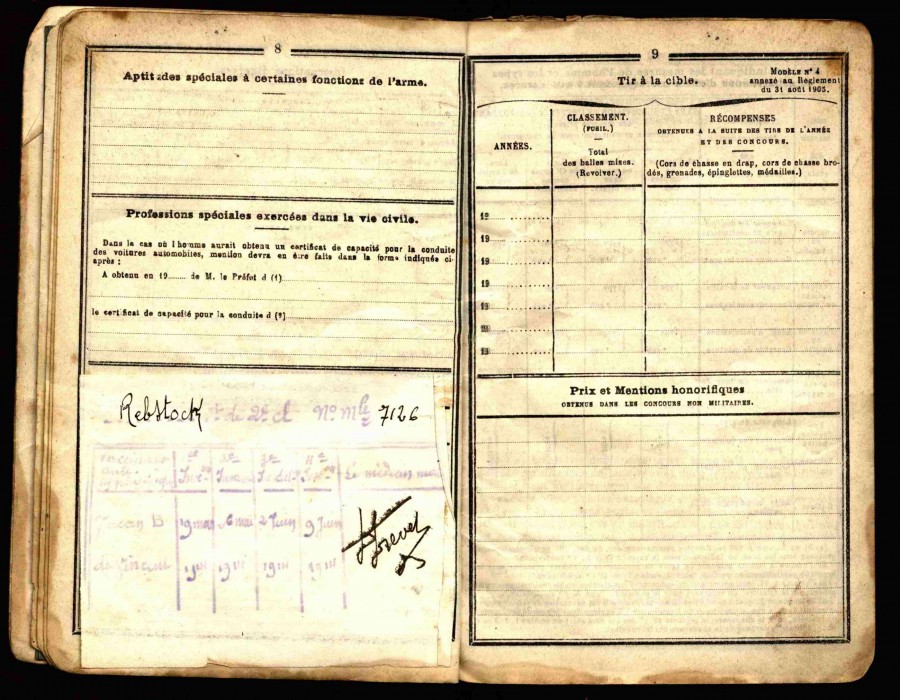 8
Aptitudes spéciales à certaines fonctions de l'arme.
Professions spéciales exercées dans la vie civile.
Dans le cas où l'homme aurait obtenu un certificat de capacité pour la conduite
des voitures automobiles, mention devra en être faite dans la forme indiquée ci-
après :
A obtenu en 19........ de M. le Préfet d (1)
le certificat de capacité pour la conduite d (2)
Rebstock de 2e cl No mle 7126
1e 2e 3e 4e
Le médecin
Vaccin B 19 mai 26 mai 2 Juin 9 Juin
de Vincent
9
Tir à la cible.
MODÈLE N° 4
annexé au Règlement
du 31 août 1905.
ANNÉES.
CLASSEMENT.
(FUSIL.)
Total
des balles mises.
(Revolver.)
RÉCOMPENSES
OBTENUES A LA SUITE DES TIRS DE L'ANNÉE
ET DES CONCOURS.
(Cors de chasse en drap, cors de chasse bro-
dés, grenades, épinglettes, médailles.)
19
19
19
19
19
19
19
Prix et Mentions honorifiques
OBTENUS DANS LES CONCOURS NON MILITAIRES.